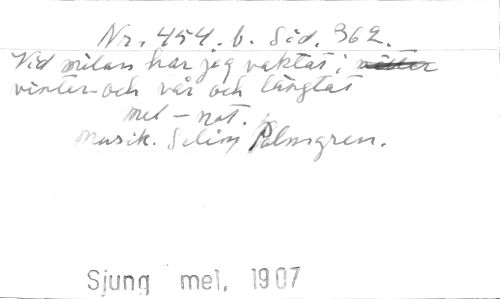 Nr. 454. b. Sid. 362.
Vid milan har jag vaktat i
vinter och vår och längtat
mel - not.
Musik. Selim Palmgren.
Sjung mel. 1907